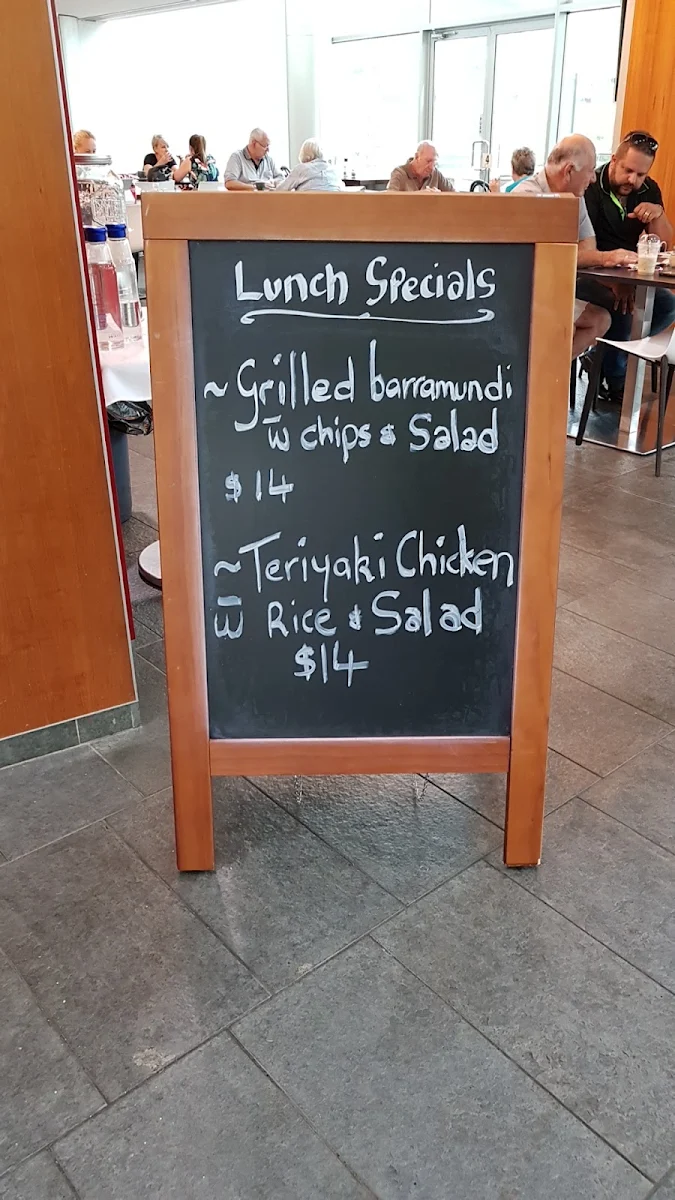 Lunch Specials
~Grilled barramundi
w̅ chips & Salad
$14
~Teriyaki Chicken
w̅ Rice & Salad
$14